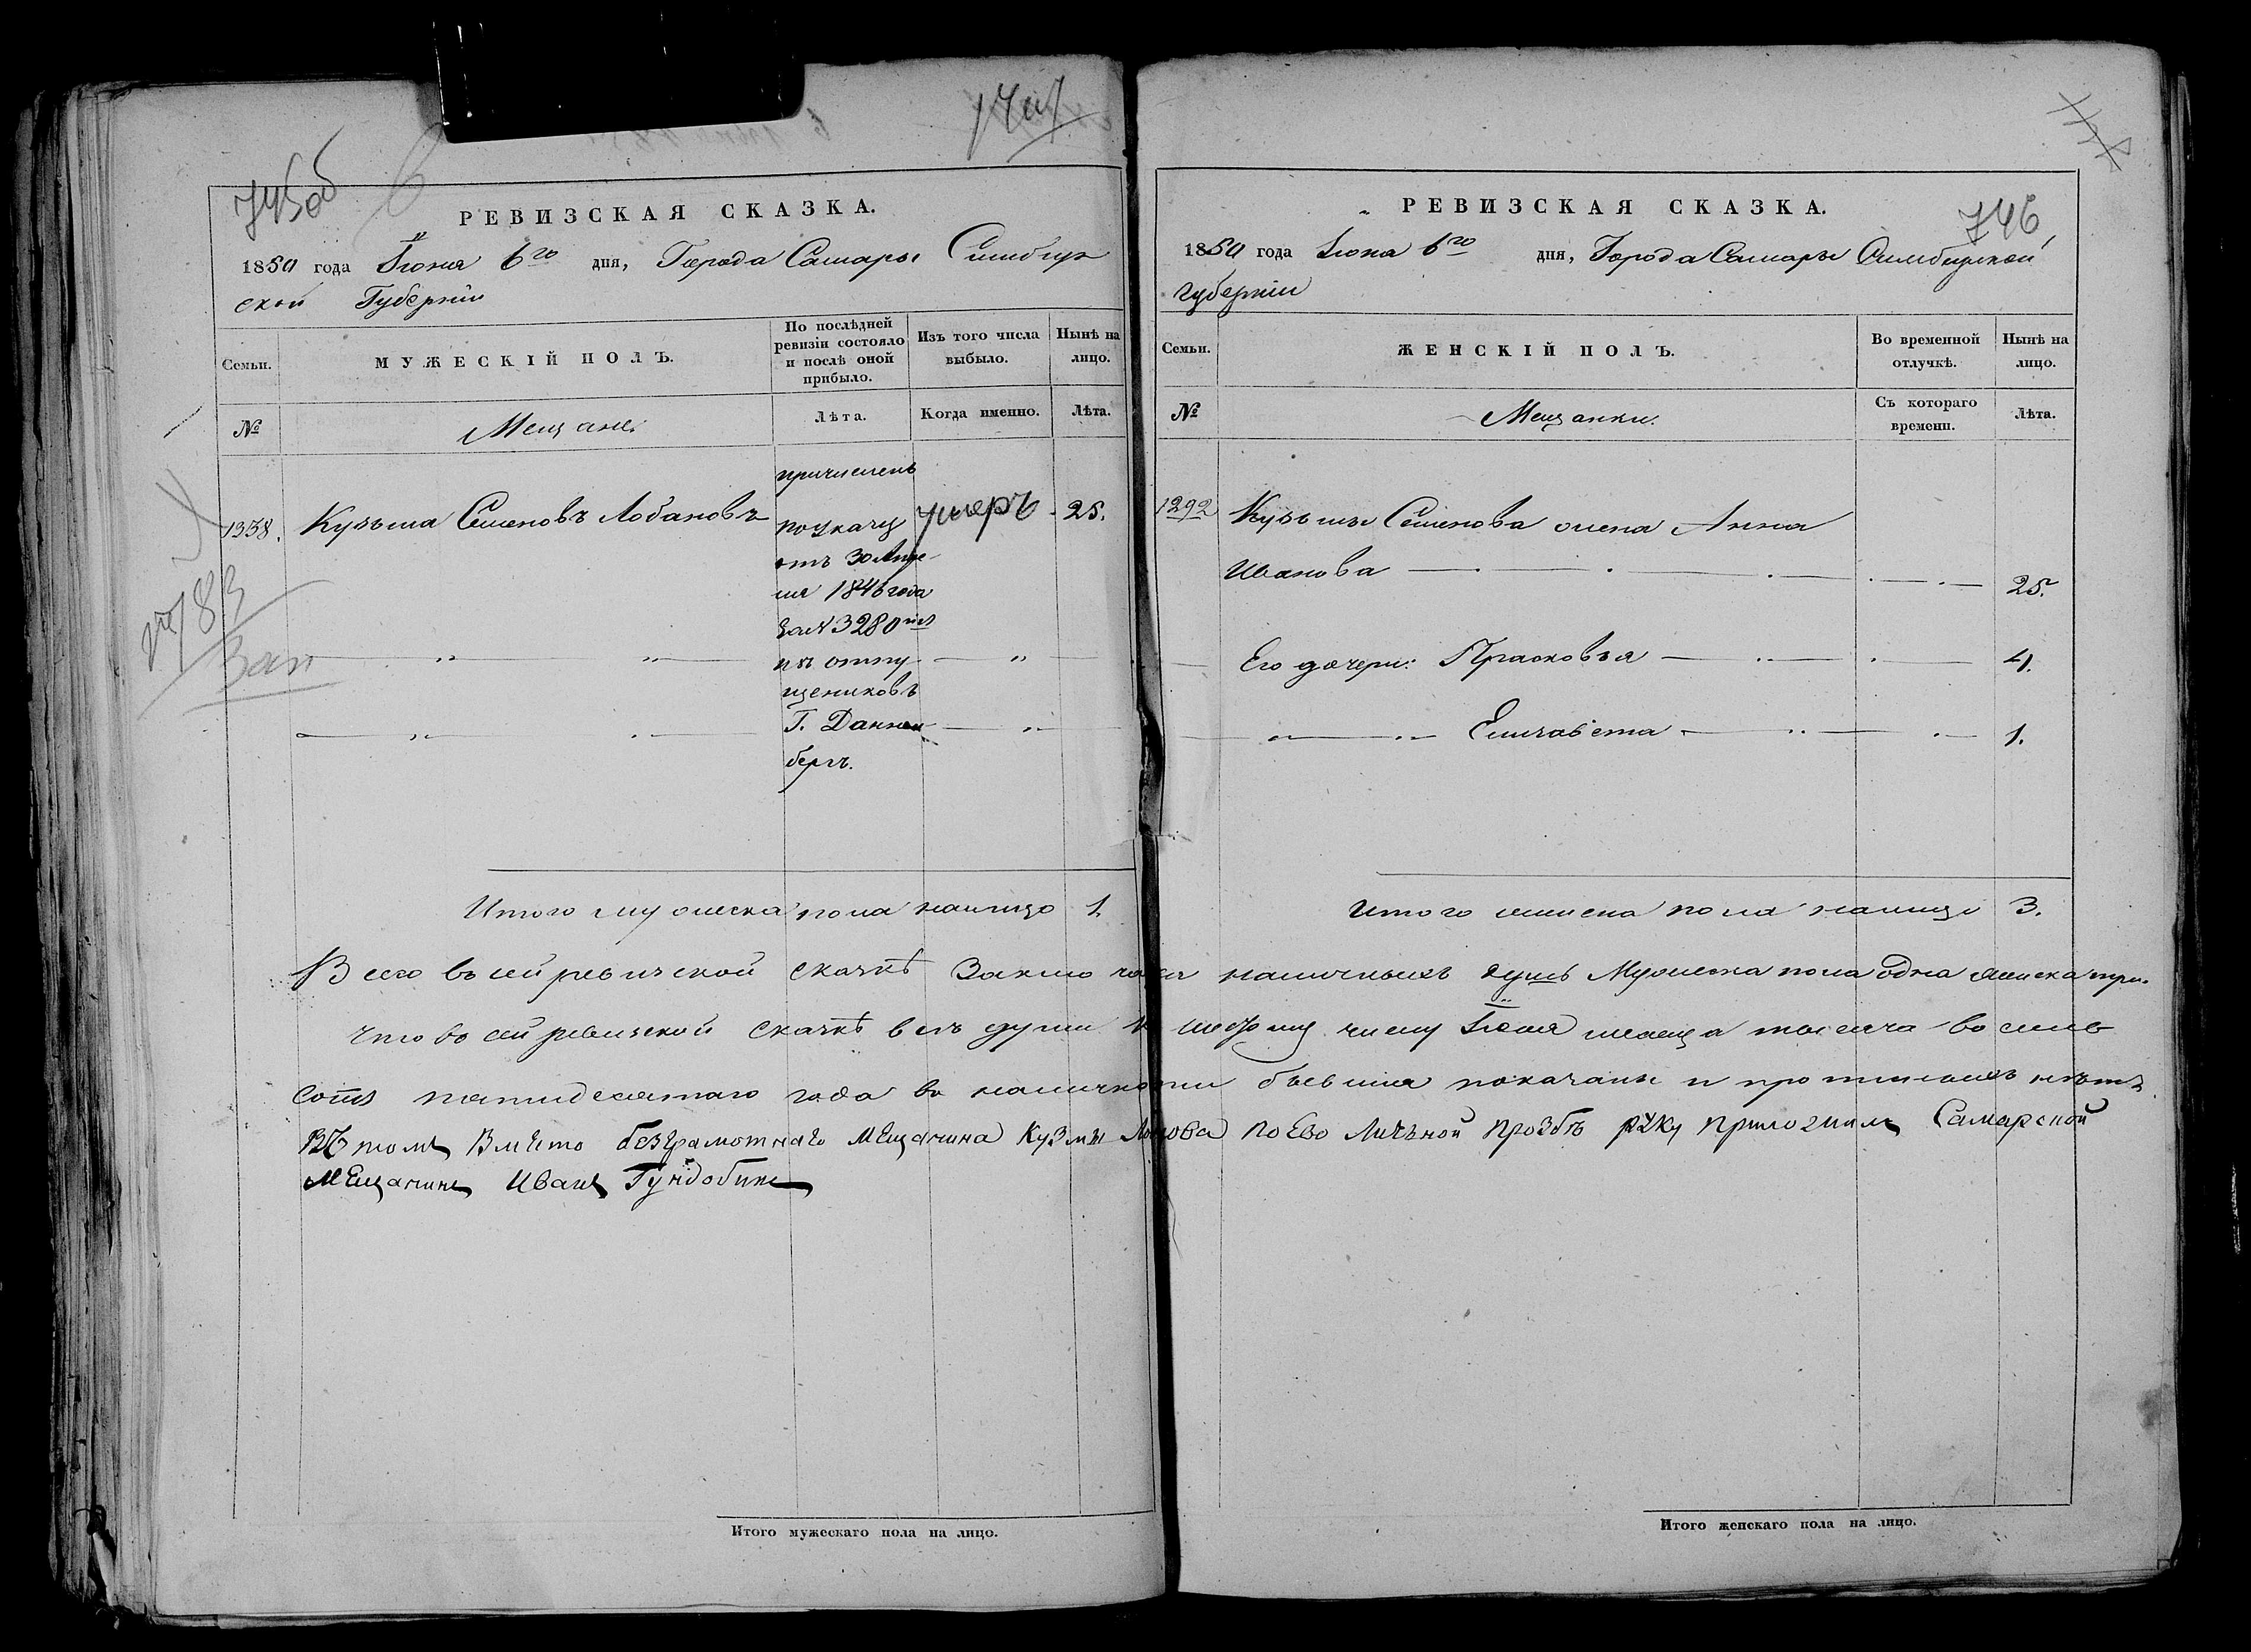 745об
РЕВИЗСКАЯ СКАЗКА.
1850 года Іюня 6го дня, Города Самары Симбир
ской Губерніи
Семьи.
МУЖЕСКІЙ ПОЛЪ.
По послѣдней
ревизіи состояло
и послѣ оной
прибыло.
Изъ того числа
выбыло.
Нынѣ на
лицо.
№
Мещане.
Лѣта.
Когда именно.
Лѣта.
1358. Кузьма Семеновъ Лобановъ
причисленъ
по указу
отъ 30 Апре
ля 1846 года
за № 3280
изъ отпу
щениковъ
Г. Даннен
бергъ.
умеръ
25.
83
Зап
Итого мужеска пола налицо 1.
746
РЕВИЗСКАЯ СКАЗКА.
1850 года Іюня 6го дня, Города Самары Симбирской
губерніи
Семьи.
ЖЕНСКІЙ ПОЛЪ.
Во временной
отлучкѣ.
Нынѣ на
лицо.
№
Мещанки.
Съ котораго
времени.
Лѣта.
1292 Кузьмы Семенова жена Анна
Иванова 25.
Его дочери: Прасковья 4.
Елизавета 1.
Итого женска пола налицо 3.
Всего въ сей ревизской сказкѣ заключается наличныхъ душъ Мужеска пола одна женска три.
что въ сей ревизской сказкѣ все души к шестому числу Іюня месяца тысяча восемь
сотъ пятидесятаго года въ наличности бывшия показаны и прописныхъ нѣтъ
Въ томъ Вместо безграмотнаго Мещанина Кузмы по Ево Личьной прозбѣ руку приложилъ Самарской
Мещанинъ Иванъ Гундобинъ
Итого мужескаго пола на лицо.
Итого женскаго пола на лицо.